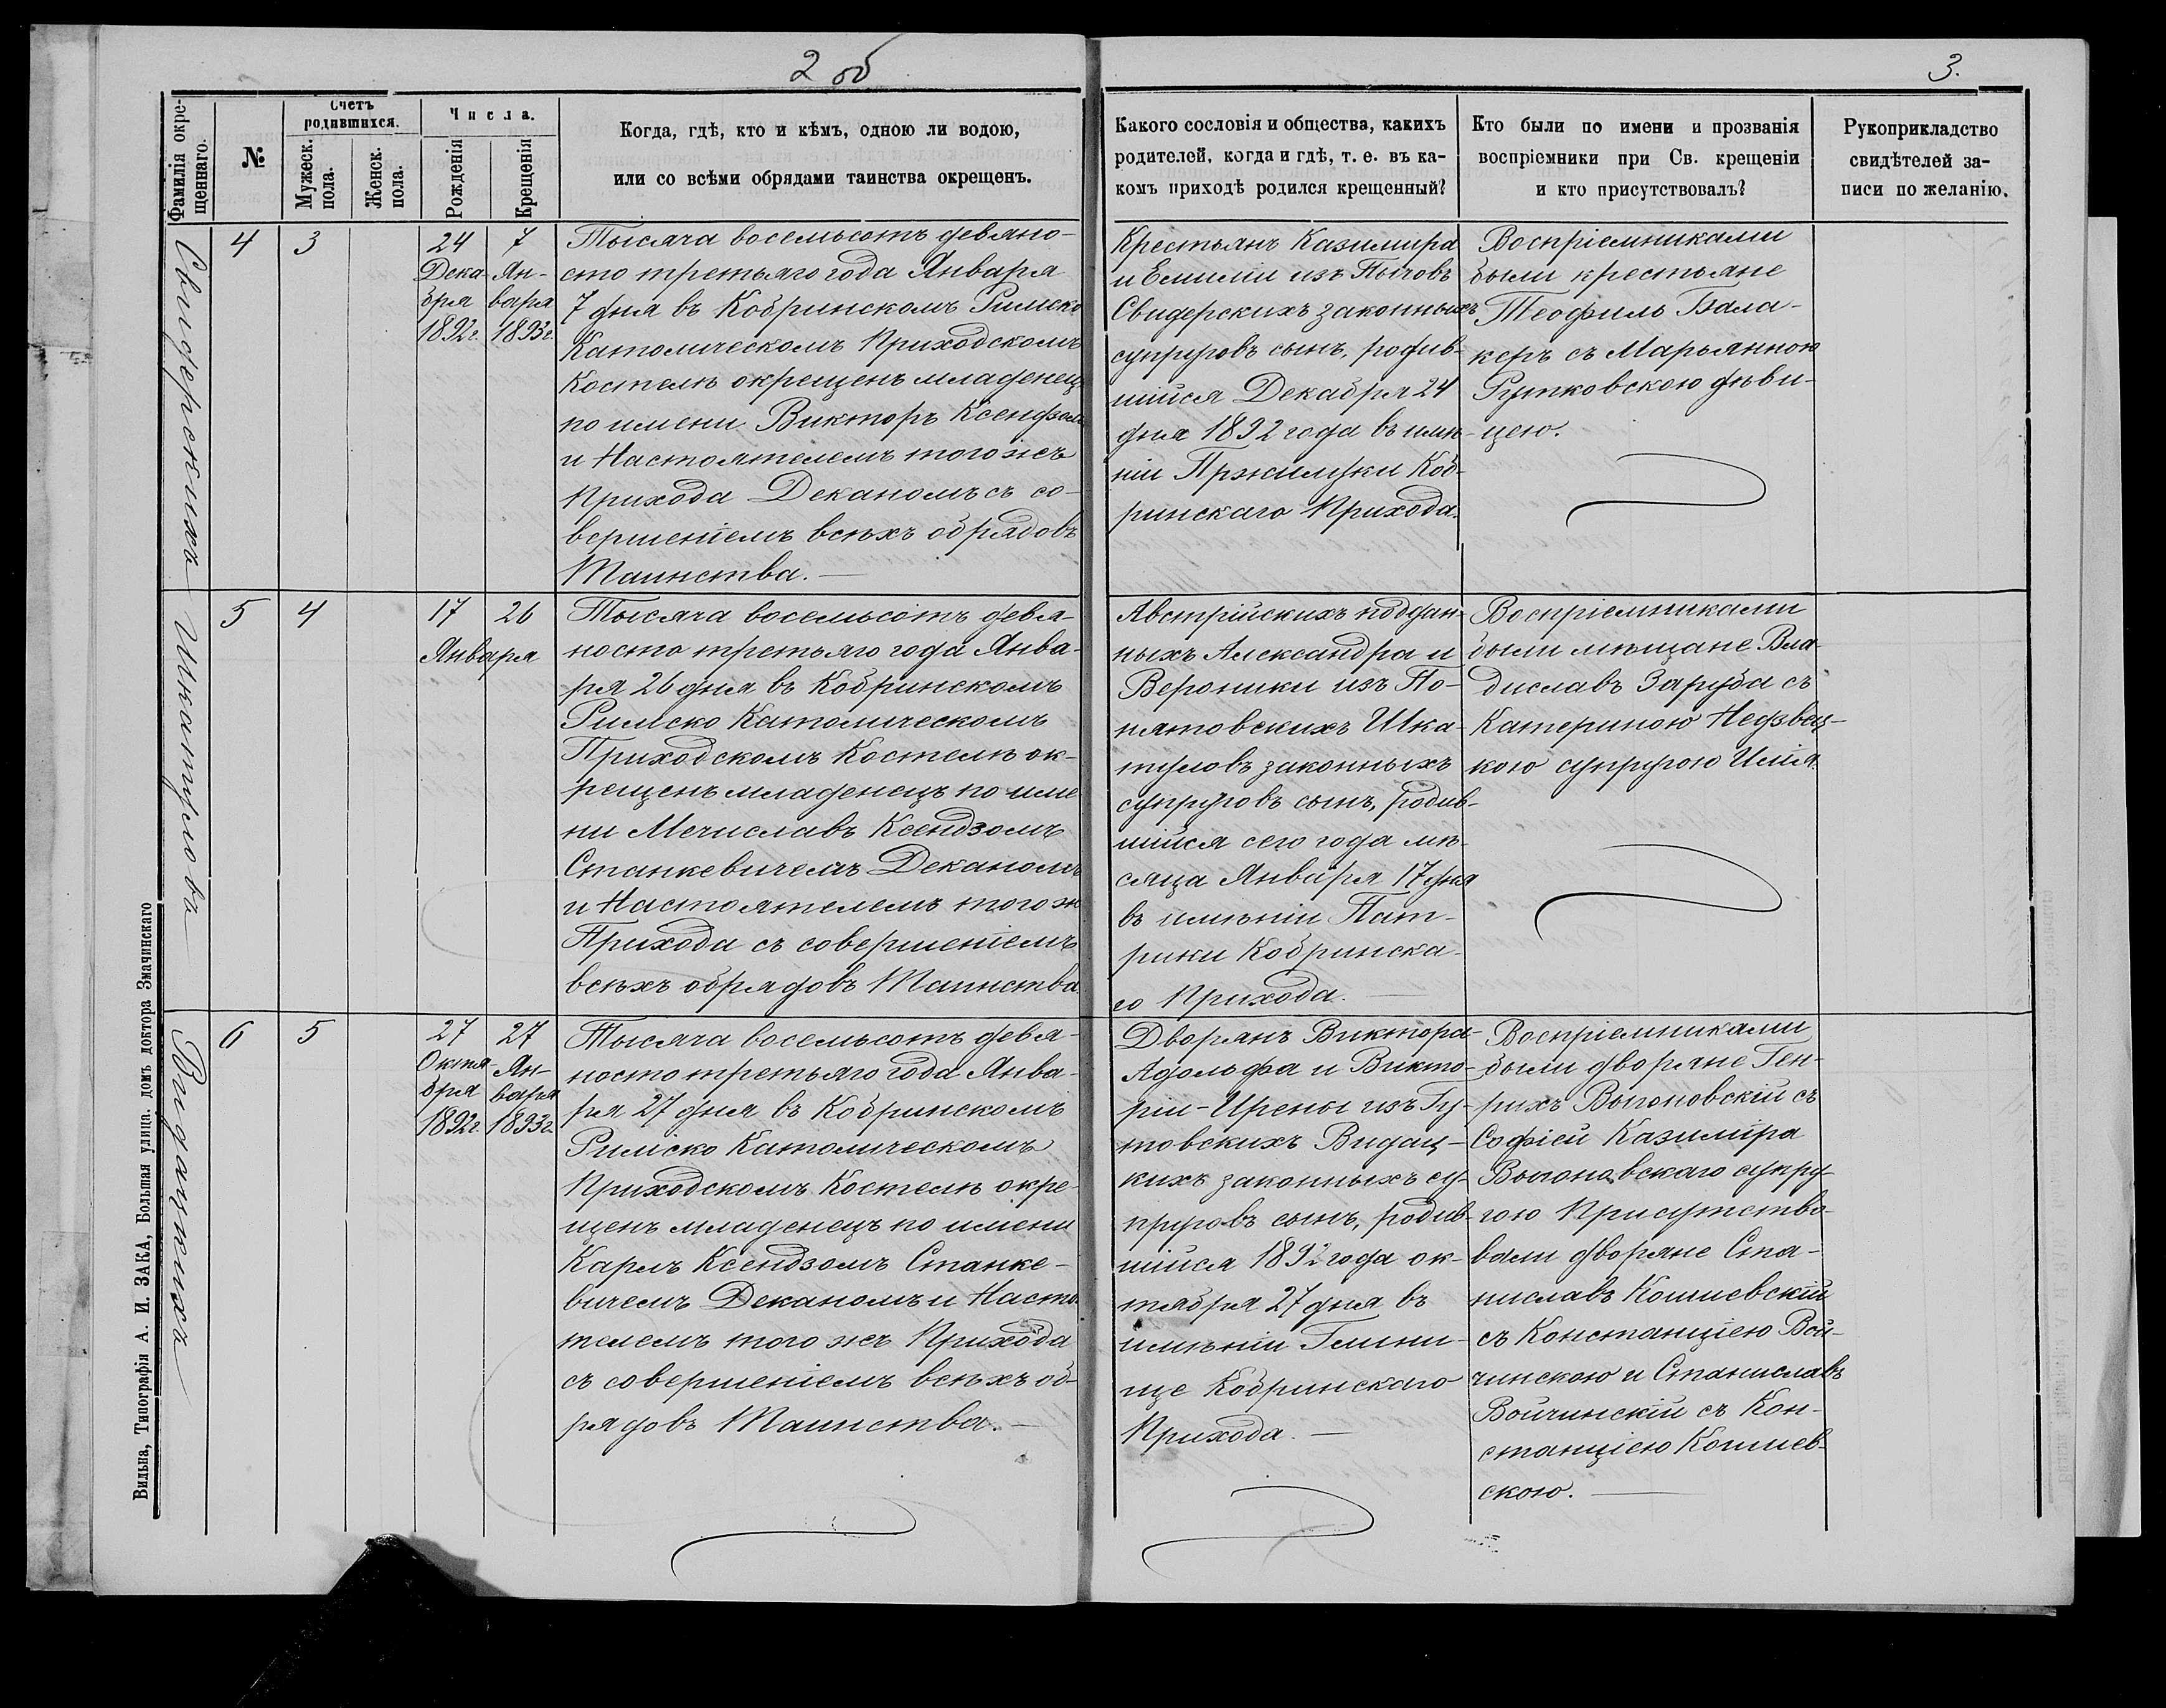 2 об
3.
Фамилія окре-
щеннаго.
№
Счетъ
родившихся.
Мужеск.
пола.
Женск.
пола.
Числа.
Рожденія
Крещенія
Когда, гдѣ, кто и кѣмъ, одною ли водою,
или со всѣми обрядами таинства окрещенъ.
Какого сословія и общества, какихъ
родителей, когда и гдѣ, т. е. въ ка-
комъ приходѣ родился крещенный?
Кто были по имени и прозванія
воспріемники при Св. крещеніи
и кто присутствовалъ?
Рукоприкладство
свидѣтелей за-
писи по желанію.
Свидерскихъ
4
3
24
Дека-
бря
1892г.
7
Ян-
варя
1893г.
Тысяча восемьсотъ девяно-
сто третьяго года Января
7 дня въ Кобринскомъ Римско
Католическомъ Приходскомъ
Костелѣ окрещенъ младенецъ
по имени Викторъ Ксендзомъ
и Настоятелемъ того жъ
Прихода Деканомъ съ со-
вершеніемъ всѣхъ обрядовъ
Таинства.
Крестьянъ Казимира
и Емиліи изъ
Свидерскихъ законныхъ
супруговъ сынъ, родив-
шійся Декабря 24
дня 1892 года въ имѣ-
ніи Пржилуки Коб-
ринскаго Прихода.
Воспріемниками
были крестьяне
Теофиль Бала-
керъ съ Марьянною
Рутковскою дѣви-
цею.
Шкатуловъ
5
4
17
26
Января
Тысяча восемьсотъ девя-
носто третьяго года Янва-
ря 26 дня въ Кобринскомъ
Римско Католическомъ
Приходскомъ Костелѣ ок-
рещенъ младенецъ по име
ни Мечиславъ Ксендзомъ
Станкевичемъ Деканомъ
и Настоятелемъ того ж
Прихода съ совершеніемъ
всѣхъ обрядовъ Таинства.
Австрійскихъ поддан-
ныхъ Александра и
Вероники изъ По-
нятовскихъ Шка-
туловъ законныхъ
супруговъ сынъ, родив-
шійся сего года мѣ-
сяца Января 17 дня
въ имѣніи Пат-
рики Кобринска-
го Прихода.
Воспріемниками
были мѣщане Вла-
диславъ Заруба съ
Катериною Недзвец-
кою супругою
Видацкихъ
6
5
27
Октя-
бря
1892г.
27
Ян-
варя
1893г.
Тысяча восемьсотъ девя-
носто третьяго года Янва-
ря 27 дня въ Кобринскомъ
Римско Католическомъ
Приходскомъ Костелѣ окре-
щенъ младенецъ по имени
Карлъ Ксендзомъ Станке-
вичемъ Деканомъ и Насто
телемъ того жъ Прихода
съ совершеніемъ всѣхъ об-
рядовъ Таинства.
Дворянъ Виктора-
Адольфа и Викто-
ріи-Ирены изъ Гу-
товскихъ Видац-
кихъ законныхъ су-
пруговъ сынъ, родив-
шійся 1892 года ок-
тября 27 дня въ
имѣніи Глини-
ще Кобринскаго
Прихода.
Воспріемниками
были дворяне Ген-
рихъ Выгоновскій съ
Софіей Казиміра
Выгоновскаго супру-
гою Присутство-
вали дворяне Ста-
ниславъ Кошиевскій
съ Констанціею Вой-
чинскою и Станиславъ
Войчинскій съ Кон-
станціею Кошиев-
скою.
Вильна, Типографія А. И. ЗАКА, Большая улица. домъ доктора Змачинскаго